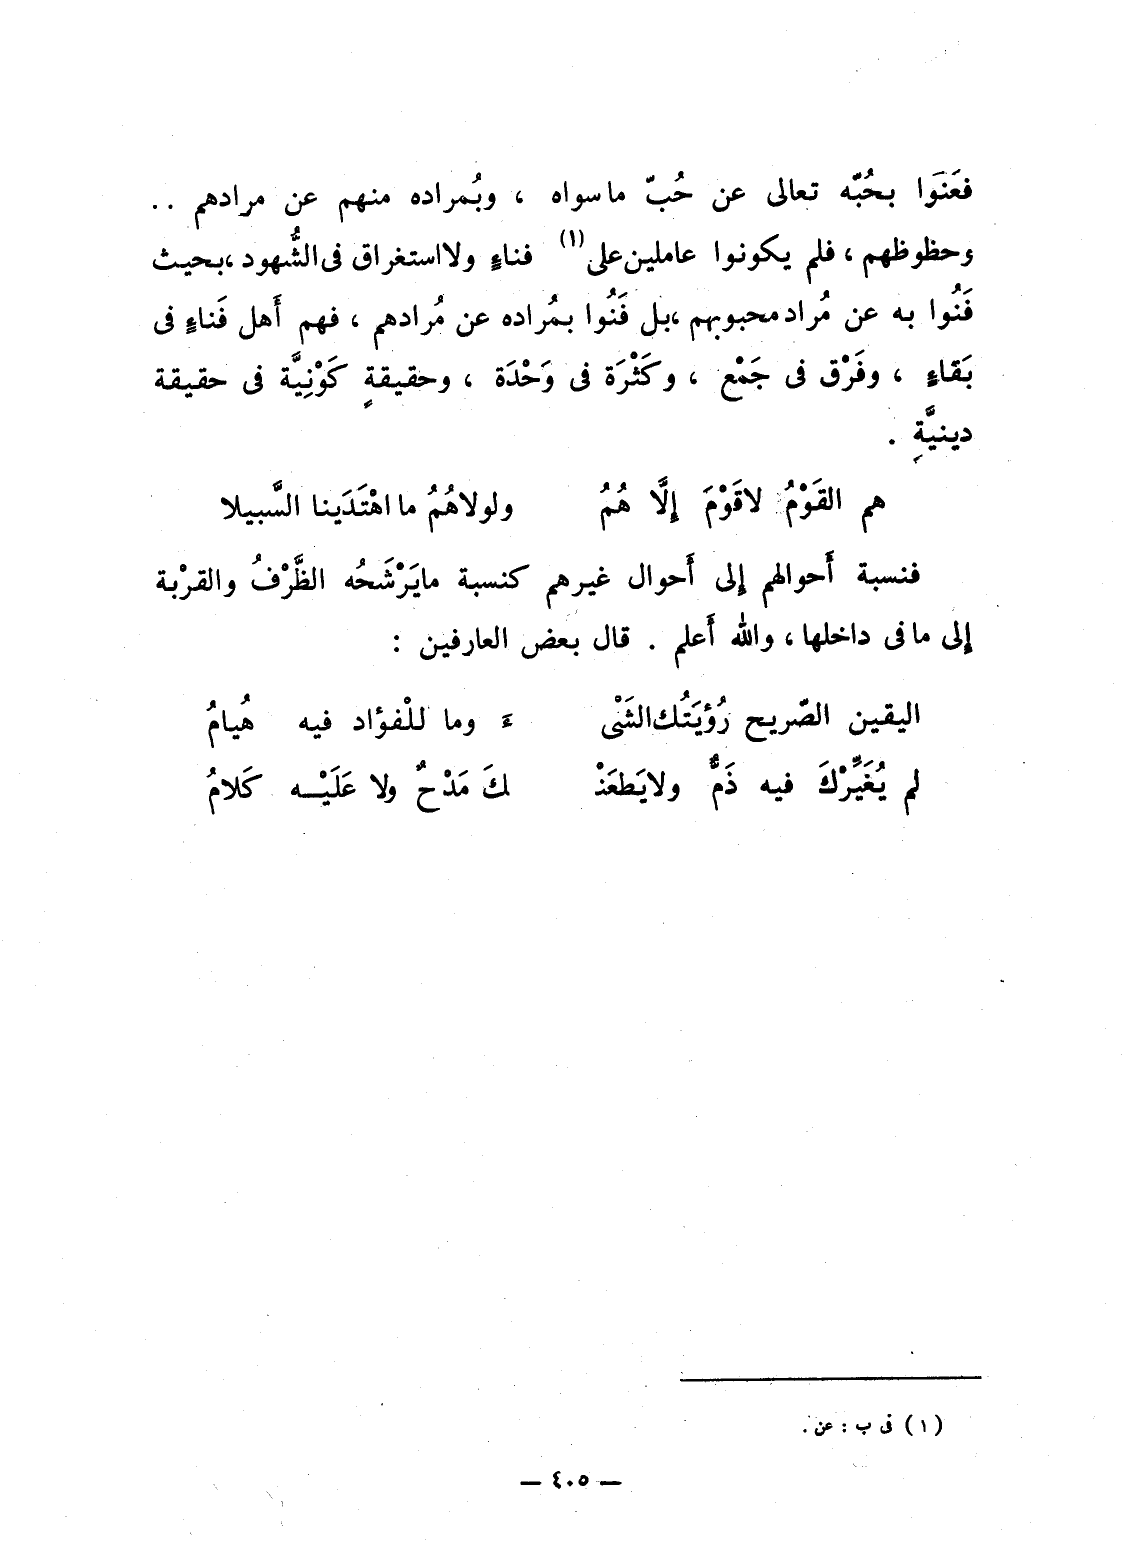 فعَنَوا بحُبّه تعالى عن حُبّ ماسواه ، وبُمراده منهم عن مرادهم ..
وحظوظهم ، فلم يكونوا عاملين على (١) فناءٍ ولااستغراق فى الشُّهود ، بحيث
فَنُوا به عن مُراد محبوبهم ، بل فَنُوا بمُراده عن مُرادهم ، فهم أَهل فَناءٍ فى
بَقاءٍ ، وفَرْق فى جَمْع ، وكَثْرَة فى وَحْدَة ، وحقيقةٍ كَوْنِيَّة فى حقيقة
دينيَّةٍ .
هم القَوْمُ لاقَوْمَ إِلَّا هُمُ ولولاهُمُ ما اهْتَدَينا السَّبيلا
فنسبة أَحوالهم إِلى أَحوال غيرهم كنسبة مايَرْشَحُه الظَّرْفُ والقرْبة
إِلى ما فى داخلها ، والله أَعلم . قال بعض العارفين :
اليقين الصّريح رُؤيَتُك الشَىْ ءَ وما للْفؤاد فيه هُيامُ
لم يُغَيِّرْكَ فيه ذَمٌّ ولايَطعَنْ كَ مَدْحٌ ولا عَلَيْـه كَلامُ
(١) فى ب : عن .
— ٤٠٥ —